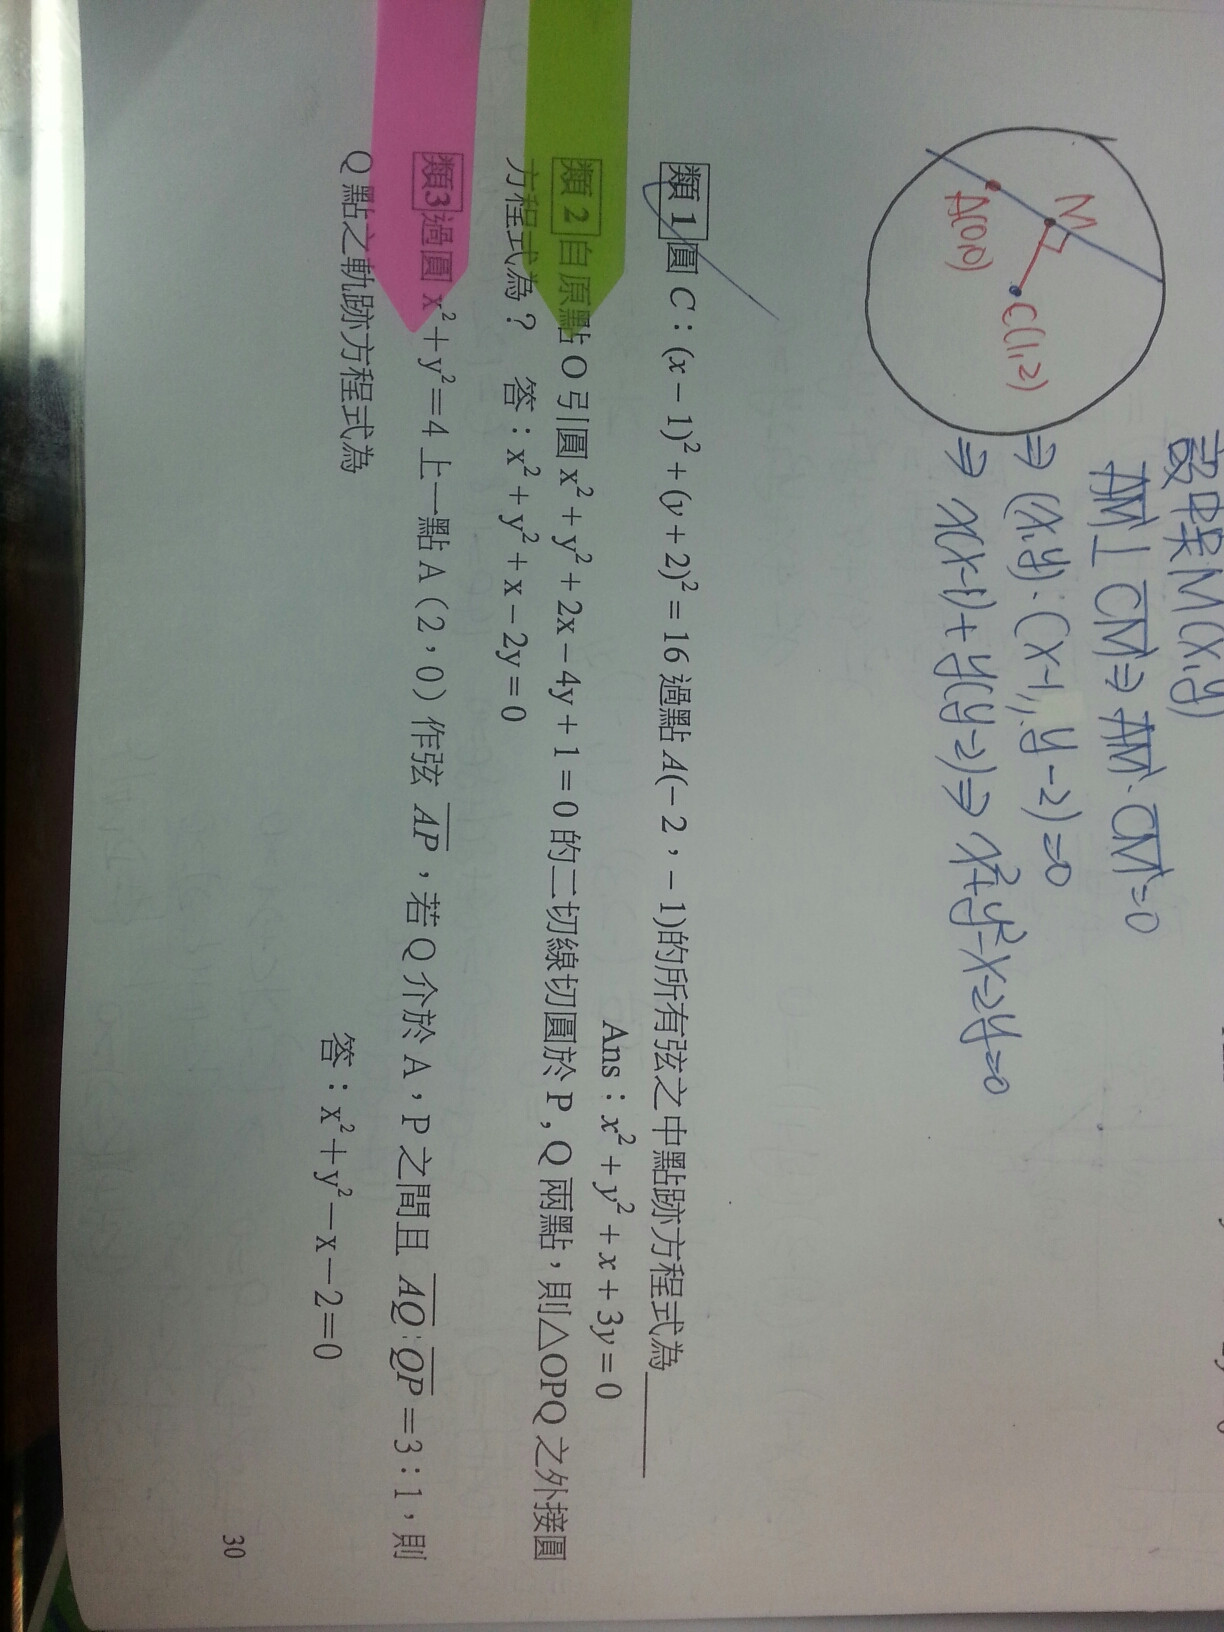 設中點M(x,y)
AM⊥CM⇒AM·CM=0
⇒(x,y)·(x-1,y-2)=0
⇒x(x-1)+y(y-2)⇒x²+y²-x-2y=0
M
A(0,0)
C(1,2)
類1 圓 C：(x－1)²＋(y＋2)²＝16 過點 A(－2，－1)的所有弦之中點跡方程式為
Ans：x²＋y²＋x＋3y＝0
類 2 自原點 O 引圓 x²＋y²＋2x－4y＋1＝0 的二切線切圓於 P，Q 兩點，則△OPQ 之外接圓
方程式為？ 答：x²＋y²＋x－2y＝0
類3 過圓 x²＋y²＝4 上一點 A（2，0）作弦 AP，若 Q 介於 A，P 之間且 AQ:QP＝3：1，則
Q 點之軌跡方程式為
答：x²＋y²－x－2＝0
30